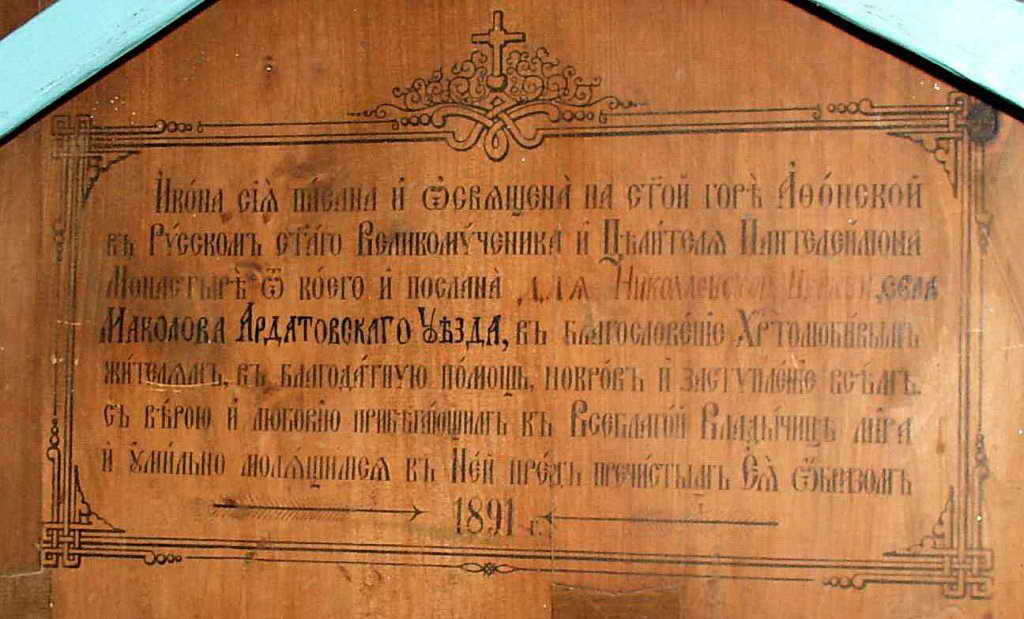 И҆ко́на сїѧ̀ пи́сана и҆ ѡ҆свѧщена̀ на ст҃о́й горѣ̀ А҆ѳо́нской
въ Рꙋ́сскомъ ст҃а́го Великомꙋ́ченика и҆ Цѣли́телѧ Пантелеи́мона
Монастырѣ̀ ѿ ко́его и҆ послана̀ для Николаевской Церкви, села
Маколова Ардатовскаго Уѣзда, въ благослове́нїе Хрⷭ҇толюби́вымъ
жи́телѧмъ, въ благода́тнꙋю по́мощь, покро́въ и҆ застꙋпле́нїе всѣ́мъ
съ вѣ́рою и҆ любо́вїю прибѣга́ющимъ къ Всеблаго́й Влады́чицѣ мі́ра
и҆ ᲂу҆ми́льно молѧ́щимсѧ къ Не́й пре́дъ пречи́стымъ Е҆ѧ̀ ѡ҆́бразомъ
1891 г.